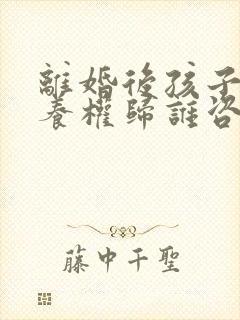 離婚後孩子
養權歸誰咨
藤中千聖